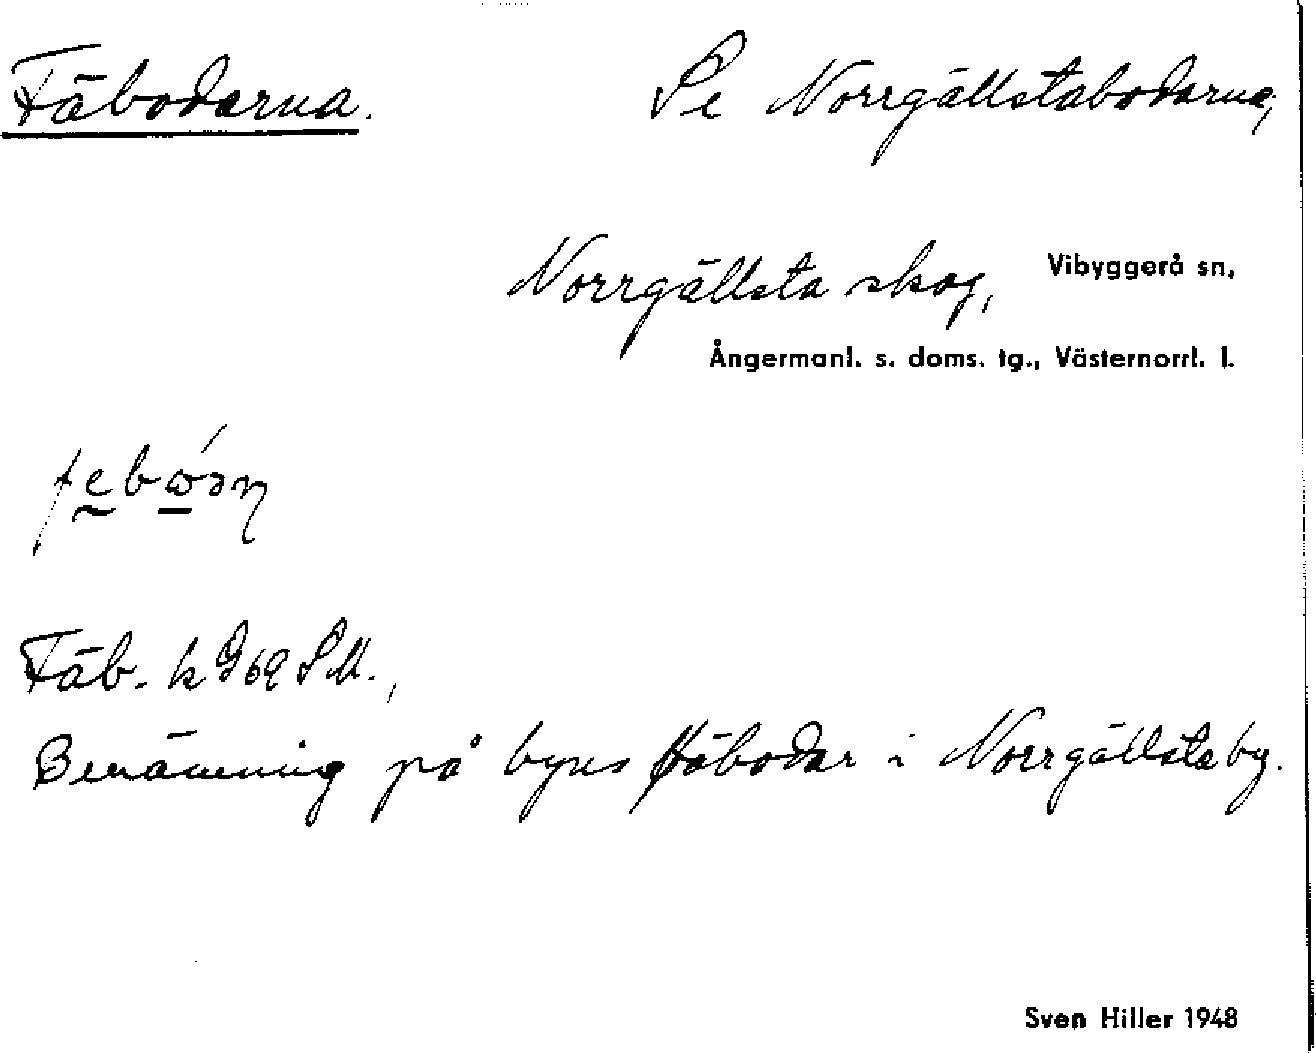 Fäbodarna. Se Norrgällstabodarna,
Norrgällsta skog, Vibyggerå sn,
Ångermanl. s. doms. tg., Västernorrl. l.
Fäb. k 9 S.M.,
Benämning på byns fäbodar i Norrgällsta by.
Sven Hiller 1948